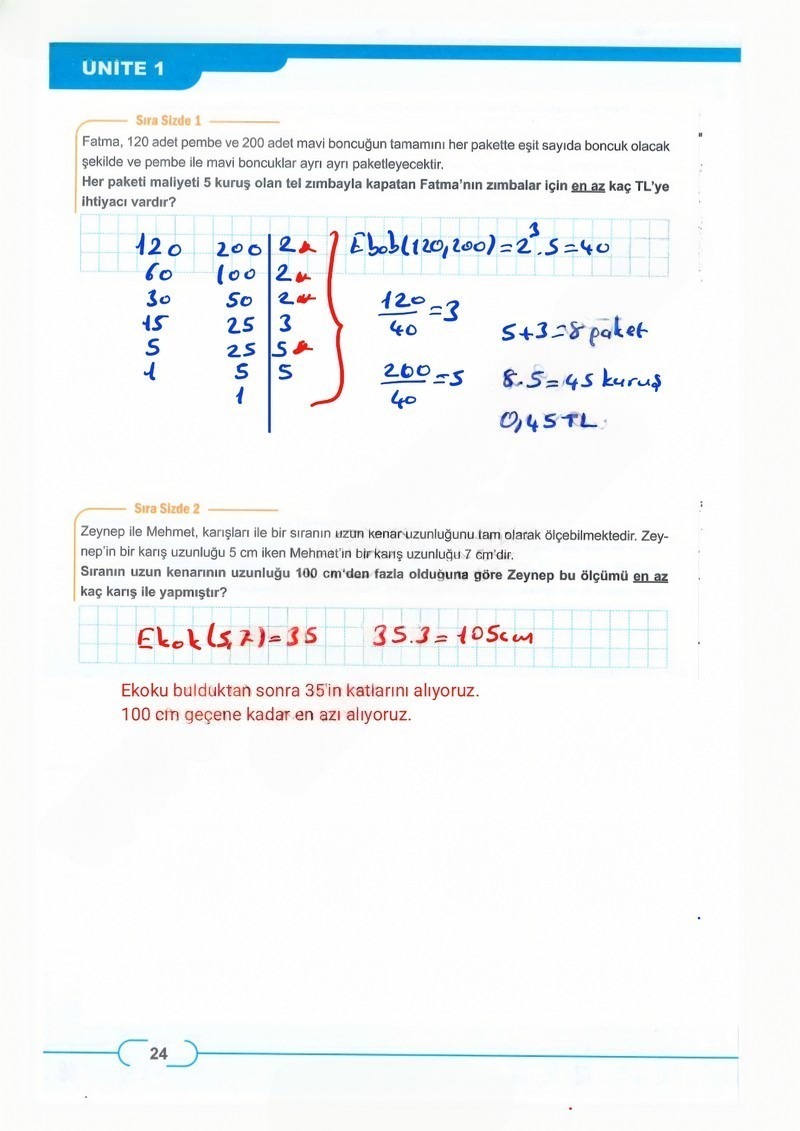 ÜNİTE 1
Sıra Sizde 1
Fatma, 120 adet pembe ve 200 adet mavi boncuğun tamamını her pakette eşit sayıda boncuk olacak
şekilde ve pembe ile mavi boncuklar ayrı ayrı paketleyecektir.
Her paketi maliyeti 5 kuruş olan tel zımbayla kapatan Fatma'nın zımbalar için en az kaç TL'ye
ihtiyacı vardır?
120 200 2
60 100 2
30 50 2
15 25 3
5 25 5
1 5 5
1
Ebob(120,200)=2³.5=40
120/40=3
200/40=5
5+3=8 paket
8.5=45 kuruş
0,45TL
Sıra Sizde 2
Zeynep ile Mehmet, karışları ile bir sıranın uzun kenar uzunluğunu tam olarak ölçebilmektedir. Zey-
nep'in bir karış uzunluğu 5 cm iken Mehmet'in bir karış uzunluğu 7 cm'dir.
Sıranın uzun kenarının uzunluğu 100 cm'den fazla olduğuna göre Zeynep bu ölçümü en az
kaç karış ile yapmıştır?
Ekok(5,7)=35 35.3=105cm
Ekoku bulduktan sonra 35'in katlarını alıyoruz.
100 cm geçene kadar en azı alıyoruz.
24